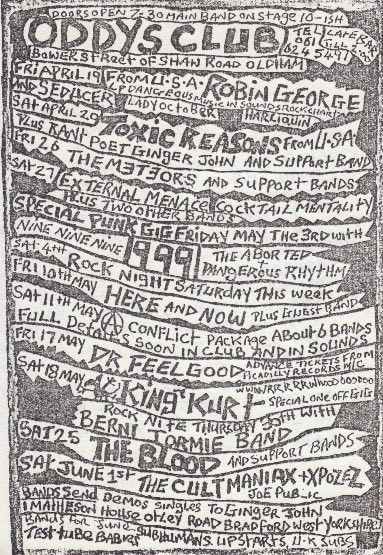 DOORS OPEN 7-30 MAIN BAND ON STAGE 10-ISH
ODDYS CLUB TEL LATE BAR TILL 2.00 624 5497
BOWER STREET OF SHAW ROAD OLDHAM
FRI APRIL 19 FROM U.S.A. ROBIN GEORGE
AND SEDUCER LP DANGEROUS MUSIC IN SOUNDS ROCK CHART
LADY OCTOBER HARLIQUIN
SAT APRIL 20 TOXIC REASONS FROM U-S-A
PLUS RANT POET GINGER JOHN AND SUPPORT BAND
FRI 26 THE METEORS AND SUPPORT BANDS
SAT 27 EXTERNAL MENACE COCKTAIL MENTALITY
PLUS TWO OTHER BANDS
SPECIAL PUNK GIG FRIDAY MAY THE 3RD WITH
NINE NINE NINE 999 THE ABORTED
SAT 4TH DANGEROUS RHYTHM
ROCK NIGHT SATURDAY THIS WEEK
FRI 10TH MAY HERE AND NOW PLUS GUEST BAND
SAT 11TH MAY CONFLICT PACKAGE ABOUT 6 BANDS
FULL DETAILS SOON IN CLUB AND IN SOUNDS
FRI 17 MAY DR. FEELGOOD ADVANCE TICKETS FROM PICADILLY RECORDS
SAT 18 MAY KING KURT
SPECIAL ONE OFF GIGS
ROCK NITE THURSDAY 30TH WITH
BERNI TORMIE BAND
SAT 25 THE BLOOD AND SUPPORT BANDS
SAT JUNE 1ST THE CULT MANIAX + XPOZEZ
JOE PUBLIC
BANDS SEND DEMOS SINGLES TO GINGER JOHN
1 MATHESON HOUSE OTLEY ROAD BRADFORD WEST YORKSHIRE
BANDS FOR JUNE SUBHUMANS UPSTARTS, U-K SUBS
TEST TUBE BABIES